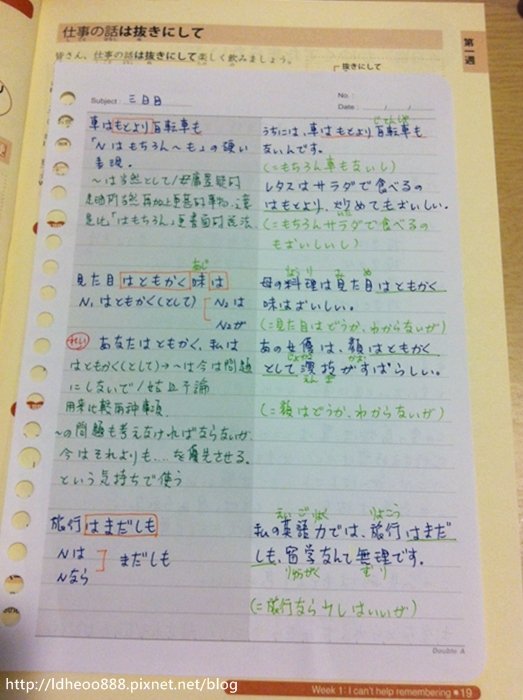 仕事の話は抜きにして
皆さん、仕事の話は抜きにして楽しく飲みましょう。
抜きにして
第一週
Subject: 三日目
No.:
Date: / /
車はもとより自転車も
「Nはもちろん〜も」の硬い
表現。
〜は当然として/毋庸置疑的
是比「はもちろん」更書面的說法
じてんしゃ
うちには、車はもとより自転車も
ないんです。
(=もちろん車もないし)
レタスはサラダで食べるの
はもとより、炒めてもおいしい。
いた
(=もちろんサラダで食べるの
もおいしいし)
あじ
見た目はともかく味は
N₁はともかく(として)
N₂は
N₂が
れい
あなたはともかく、私は
はともかく(として)→〜は今は問題
にしないで/姑且不論
用來比較兩種事項
〜の問題も考えなければならないが、
今はそれよりも…を優先させる。
という気持ちで使う
りょうり み め
母の料理は見た目はともかく
味はおいしい。
(=見た目はどうか、わからないが)
あの女優は、顔はともかく
じょゆう かお
として演技がすばらしい。
えんぎ
(=顔はどうか、わからないが)
旅行はまだしも
Nは
Nなら
まだしも
えいごりょく りょこう
私の英語力では、旅行はまだ
しも、留学なんて無理です。
りゅうがく むり
(=旅行なら少しはいいが)
Double A
Week 1: I can't help remembering 19
http://ldheoo888.pixnet.net/blog